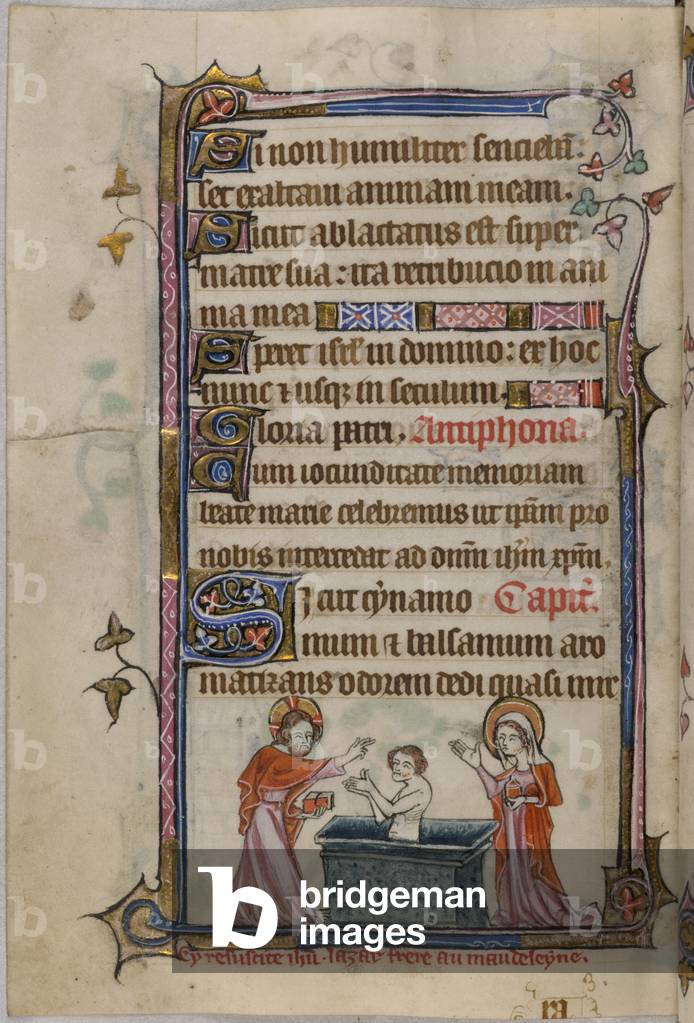 Si non humiliter sencieba̅:
set exaltaui animam meam.
Sicut ablactatus est super
matre sua: ita retribucio in ani
ma mea
Speret isrl̅ in domino: ex hoc
nunc ⁊ usqꝫ in seculum.
Gloria patri. Antiphona.
Cum iocunditate memoriam
beate marie celebremus ut ip̅a̅m pro
nobis intercedat ad dn̅m ih̅m xp̅m.
Sicut cynamo Capit̅.
mum ⁊ balsamum aro
matizans odorem dedi quasi mir
Cy resuscite ihu̅. lazar frere au maudeleyne.
bridgeman
images